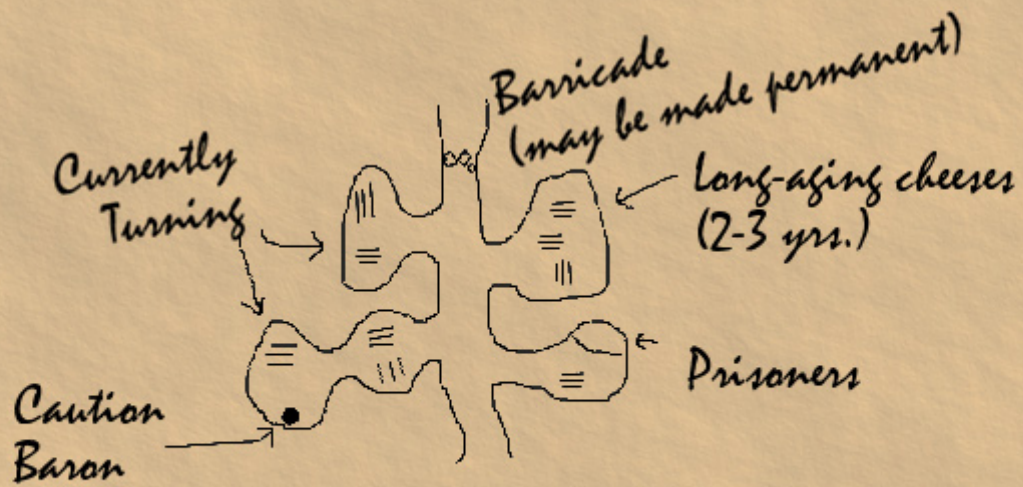 Barricade
(may be made permanent)
Currently
Turning
Long-aging cheeses
(2-3 yrs.)
Prisoners
Caution
Baron